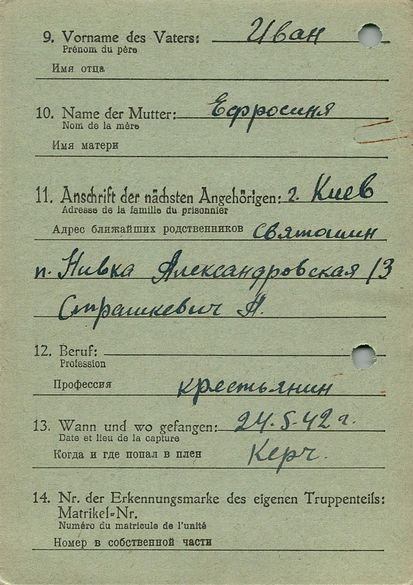 9. Vorname des Vaters: Иван
Prénom du père
Имя отца
10. Name der Mutter: Ефросиня
Nom de la mère
Имя матери
11. Anschrift der nächsten Angehörigen: г. Киев
Adresse de la famille du prisonnier
Адрес ближайших родственников Святошин
п. Нивка Александровская 13
Страшкевич А.
12. Beruf:
Profession
Профессия крестьянин
13. Wann und wo gefangen: 24.5.42 г.
Date et lieu de la capture
Когда и где попал в плен Керч.
14. Nr. der Erkennungsmarke des eigenen Truppenteils:
Matrikel-Nr.
Numéro du matricule de l'unité
Номер в собственной части